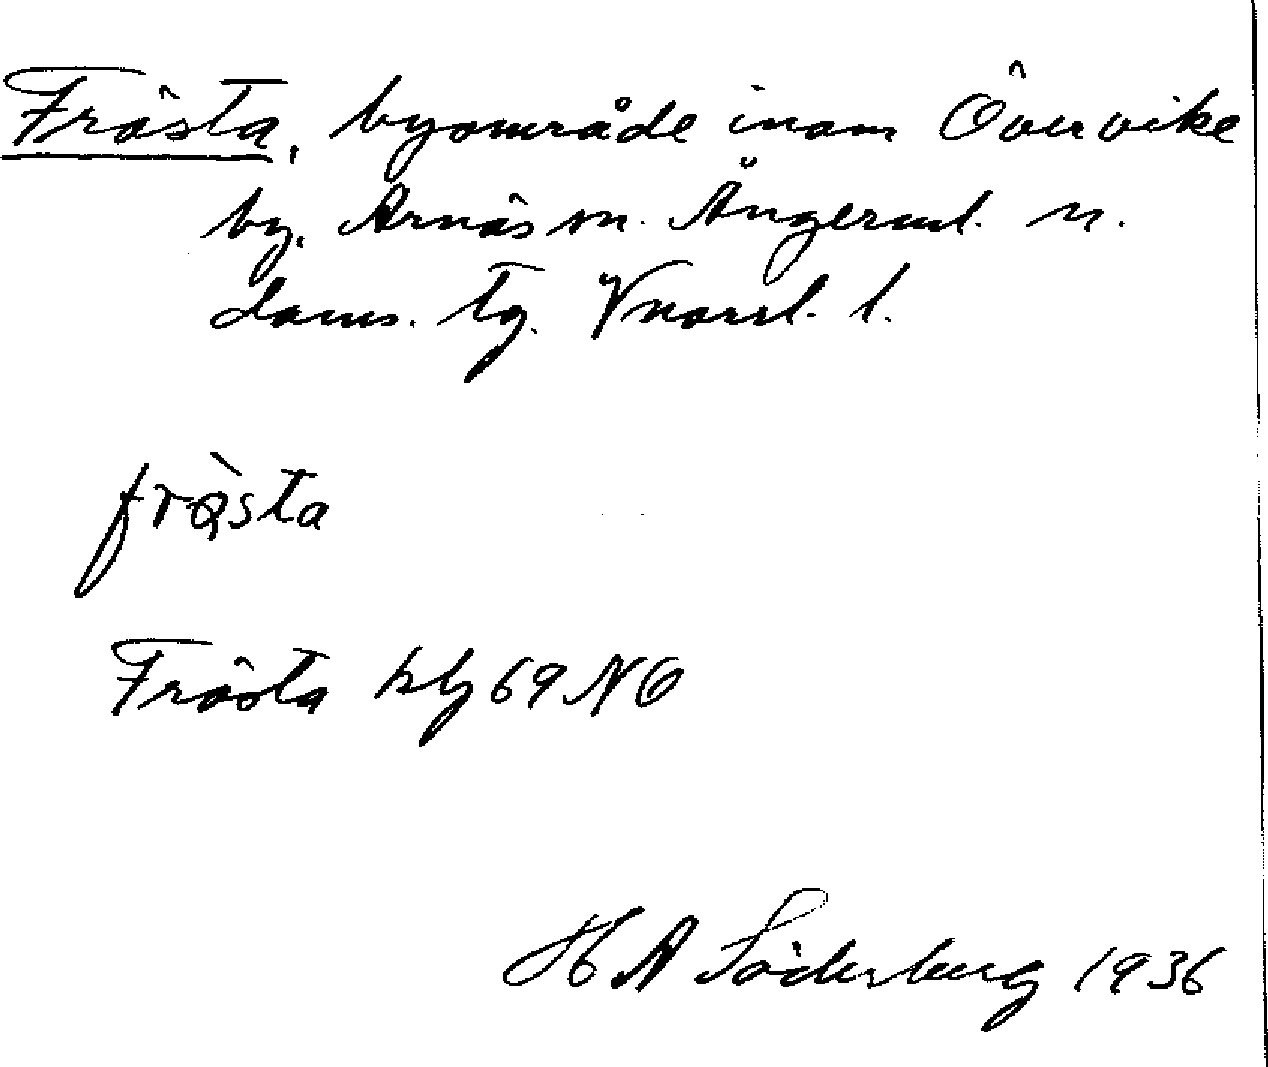 Frösta, byområde inom Övervike
by. Arnäs sn. Ångerml. n.
doms. tg. Vnorrl. l.
fròsta
Frösta kbl 69 NO
H A Söderberg 1936